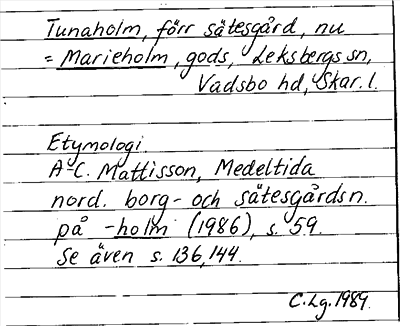 Tunaholm, förr sätesgård, nu
= Marieholm, gods, Leksbergs sn,
Vadsbo hd, Skar. l.
Etymologi
A-C. Mattisson, Medeltida
nord. borg- och sätesgårdsn.
på -holm (1986), s. 59.
Se även s. 136, 144.
C. Lg. 1989.